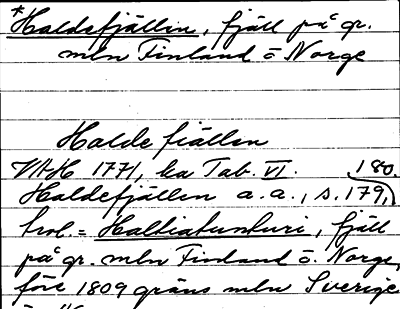 *Haldefjällen, fjäll på gr.
mln Finland o Norge
Halde fiällen
VAH 1771, ka Tab. VI. 180.
Haldefjällen a.a., s. 179,
trol. = Haltiatunturi, fjäll
på gr. mln Finland o. Norge,
före 1809 gräns mln Sverige